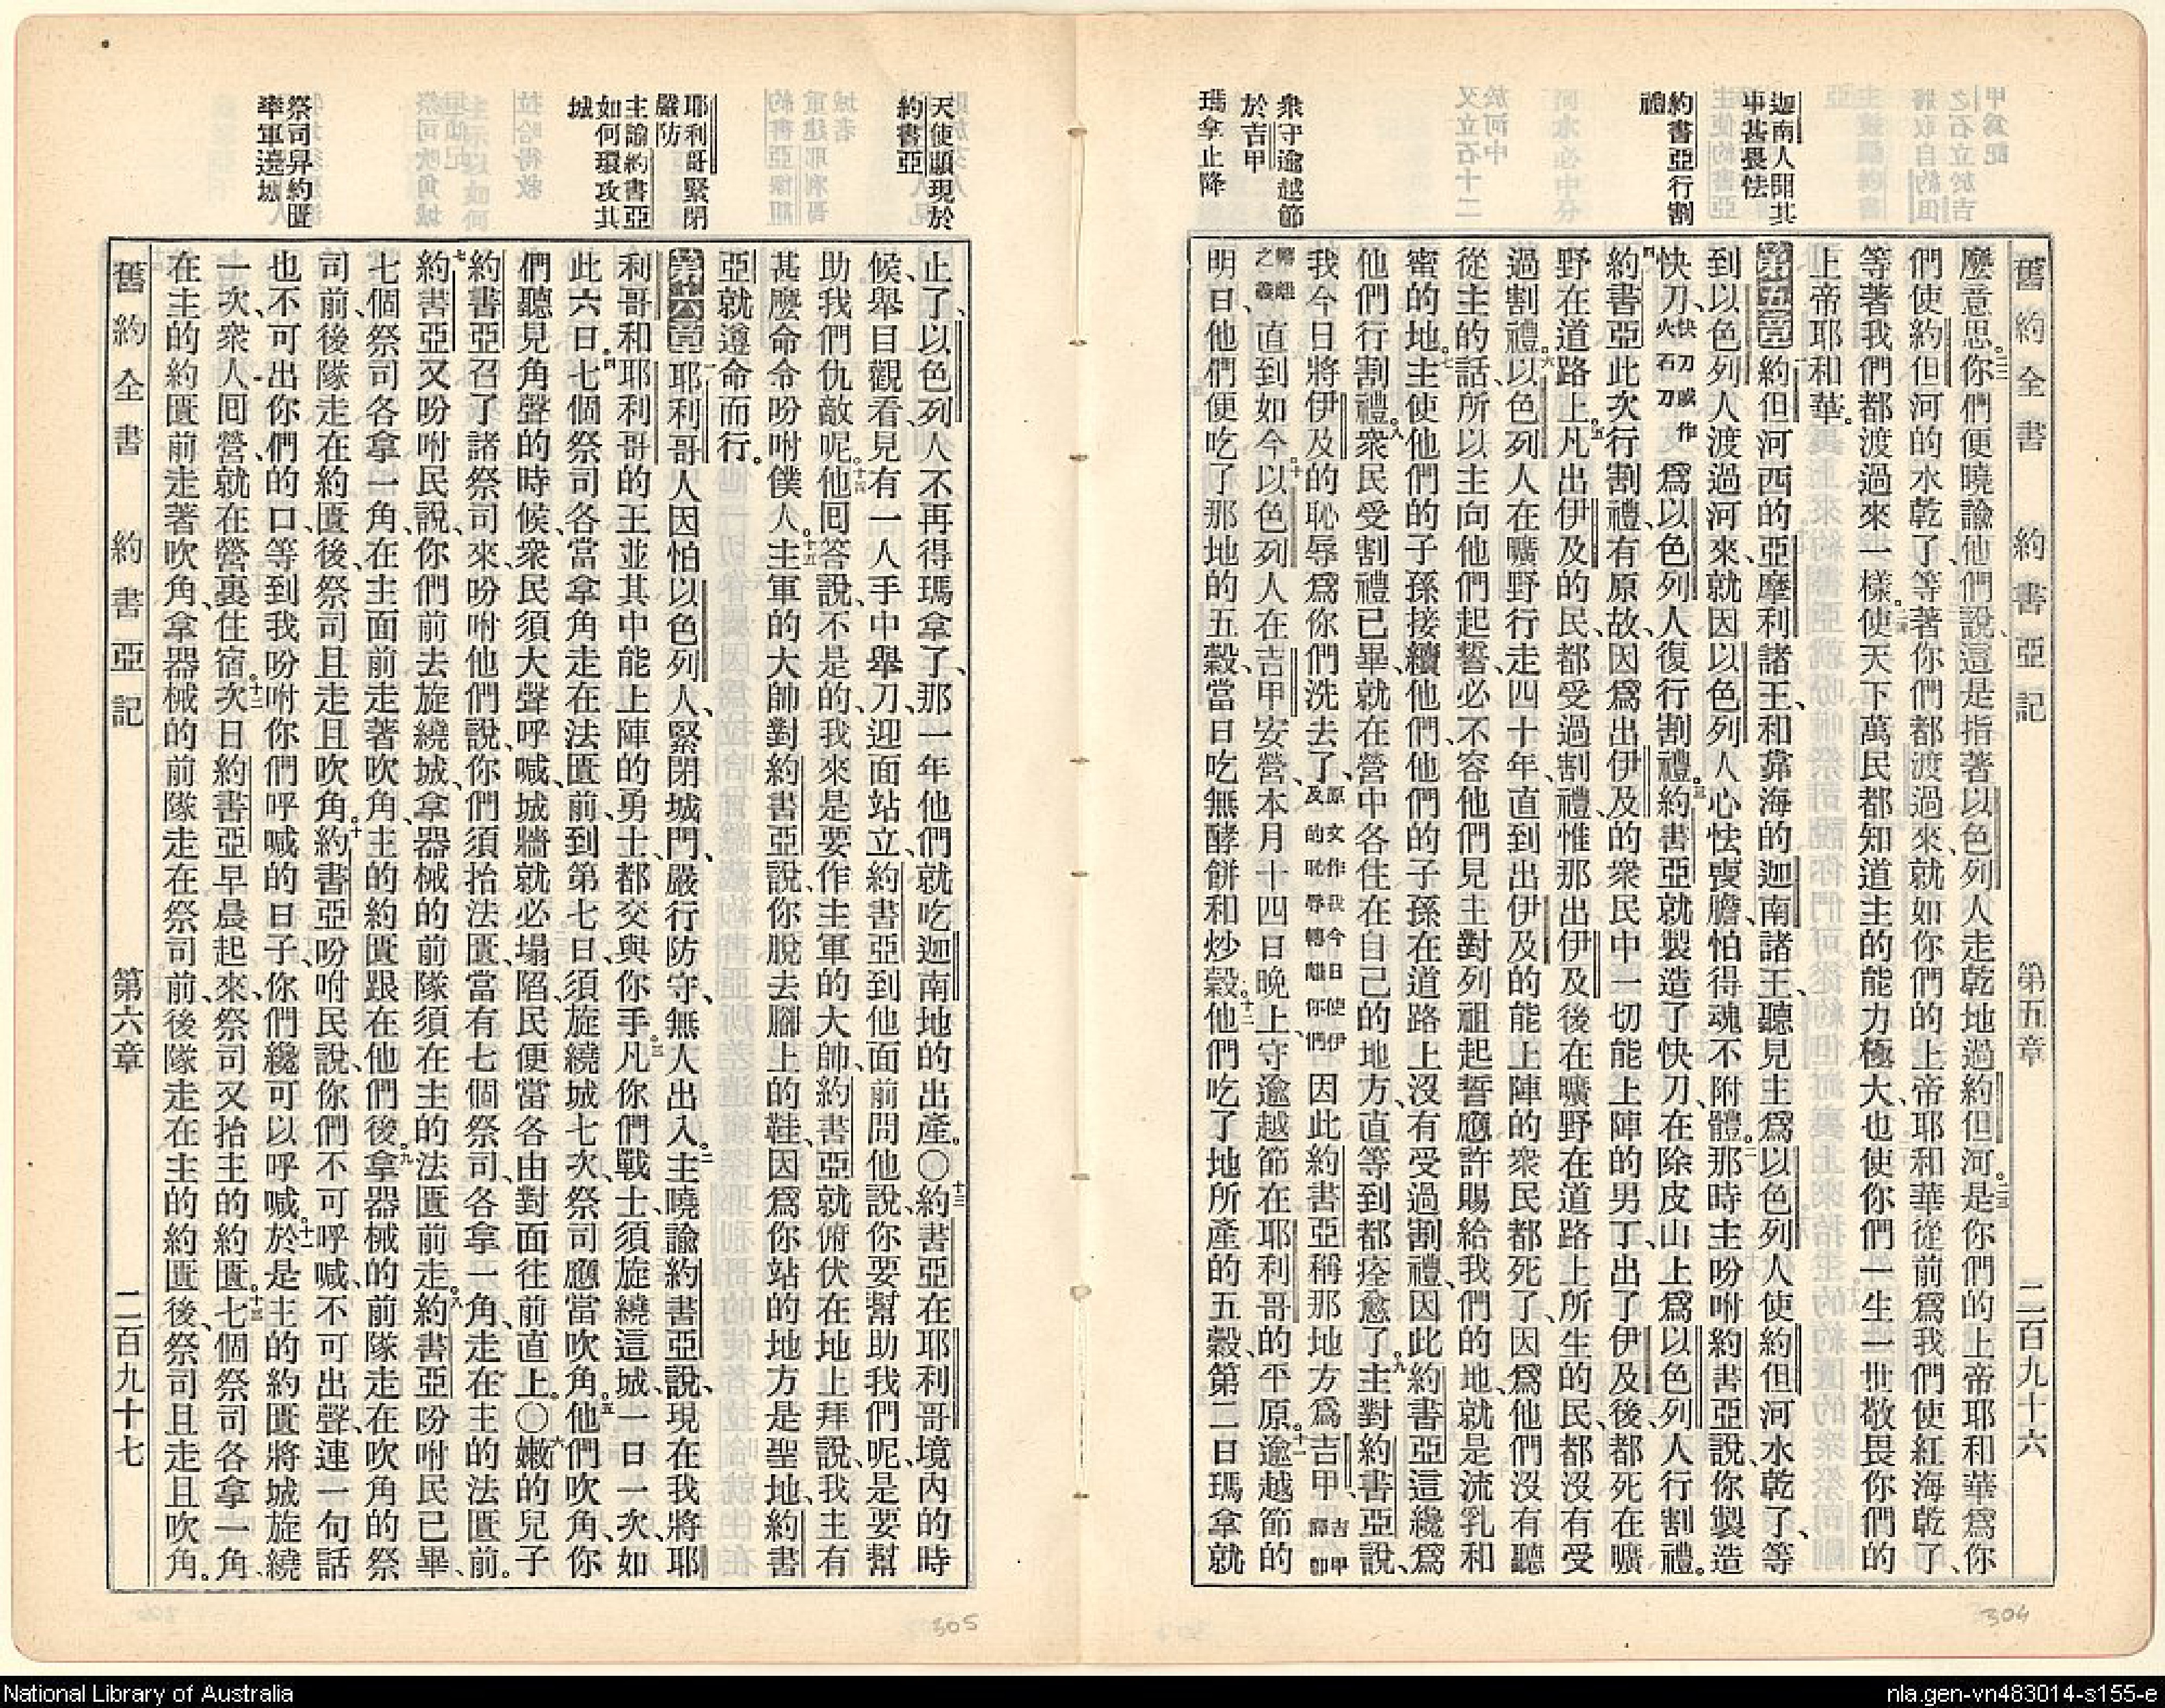 舊約全書　約書亞記　第五章　二百九十六
迦南人聞其
事甚畏怯
約書亞行割
禮
衆守逾越節
於吉甲
瑪拿止降
麼意思。二二你們便曉諭他們說、這是指著以色列人走乾地過約但河。二三是你們的上帝耶和華爲你
們使約但河的水乾了、等著你們都渡過來、就如你們的上帝耶和華從前爲我們使紅海乾了、
等著我們都渡過來一樣。二四使天下萬民都知道主的能力極大、也使你們一生一世敬畏你們的
上帝耶和華。
第五章一約但河西的亞摩利諸王、和靠海的迦南諸王、聽見主爲以色列人使約但河水乾了、等
到以色列人渡過河來、就因以色列人心怯喪膽、怕得魂不附體。二那時主吩咐約書亞說、你製造
快刀、快刀或作火石刀爲以色列人復行割禮。三約書亞就製造了快刀、在除皮山上爲以色列人行割禮。
四約書亞此次行割禮、有原故、因爲出伊及的衆民中一切能上陣的男丁、出了伊及後、都死在曠
野在道路上。五凡出伊及的民、都受過割禮、惟那出伊及後在曠野在道路上所生的民、都沒有受
過割禮。六以色列人在曠野行走四十年、直到出伊及的能上陣的衆民都死了、因爲他們沒有聽
從主的話、所以主向他們起誓、必不容他們見主對列祖起誓應許賜給我們的地、就是流乳和
蜜的地。七主使他們的子孫接續他們、他們的子孫在道路上沒有受過割禮、因此約書亞這纔爲
他們行割禮。八衆民受割禮已畢、就在營中各住在自己的地方、直等到都痊愈了。九主對約書亞說、
我今日將伊及的恥辱爲你們洗去了、原文作我今日使伊及的恥辱轉離你們因此約書亞稱那地方爲吉甲、吉甲譯卽
轉離之義直到如今。十以色列人在吉甲安營、本月十四日晚上、守逾越節在耶利哥的平原。十一逾越節的
明日、他們便吃了那地的五穀、當日吃無酵餅和炒穀。十二他們吃了地所產的五穀、第二日瑪拿就
304
天使顯現於
約書亞
耶利哥緊閉
嚴防
主諭約書亞
如何環攻其
城
祭司舁約匱
率軍遶城
止了、以色列人不再得瑪拿了、那一年他們就吃迦南地的出產。〇十三約書亞在耶利哥境內的時
候、舉目觀看、見有一人手中舉刀、迎面站立、約書亞到他面前問他說、你要幫助我們呢、是要幫
助我們仇敵呢。十四他囘答說、不是的、我來是要作主軍的大帥、約書亞就俯伏在地上拜、說、我主有
甚麼命令吩咐僕人。十五主軍的大帥對約書亞說、你脫去腳上的鞋、因爲你站的地方是聖地、約書
亞就遵命而行。
第六章一耶利哥人因怕以色列人、緊閉城門、嚴行防守、無人出入。二主曉諭約書亞說、現在我將耶
利哥和耶利哥的王、並其中能上陣的勇士、都交與你手。三凡你們戰士、須旋繞這城、一日一次、如
此六日。四七個祭司各當拿角走在法匱前、到第七日、須旋繞城七次、祭司應當吹角。五他們吹角、你
們聽見角聲的時候、衆民須大聲呼喊、城牆就必塌陷、民便當各由對面往前直上。〇六嫩的兒子
約書亞召了諸祭司來、吩咐他們說、你們須抬法匱、當有七個祭司、各拿一角、走在主的法匱前。
七約書亞又吩咐民說、你們前去旋繞城、拿器械的前隊須在主的法匱前走。八約書亞吩咐民已畢、
七個祭司各拿一角、在主面前走著吹角、主的約匱跟在他們後。九拿器械的前隊走在吹角的祭
司前、後隊走在約匱後、祭司且走且吹角。十約書亞吩咐民說、你們不可呼喊、不可出聲、連一句話
也不可出你們的口、等到我吩咐你們呼喊的日子、你們纔可以呼喊。十一於是主的約匱將城旋繞
一次、衆人囘營、就在營裏住宿。十二次日約書亞早晨起來、祭司又抬主的約匱。十三七個祭司各拿一角、
在主的約匱前走著吹角、拿器械的前隊走在祭司前、後隊走在主的約匱後、祭司且走且吹角。
舊約全書　約書亞記　第六章　二百九十七
305
National Library of Australia
nla.gen-vn483014-s155-e